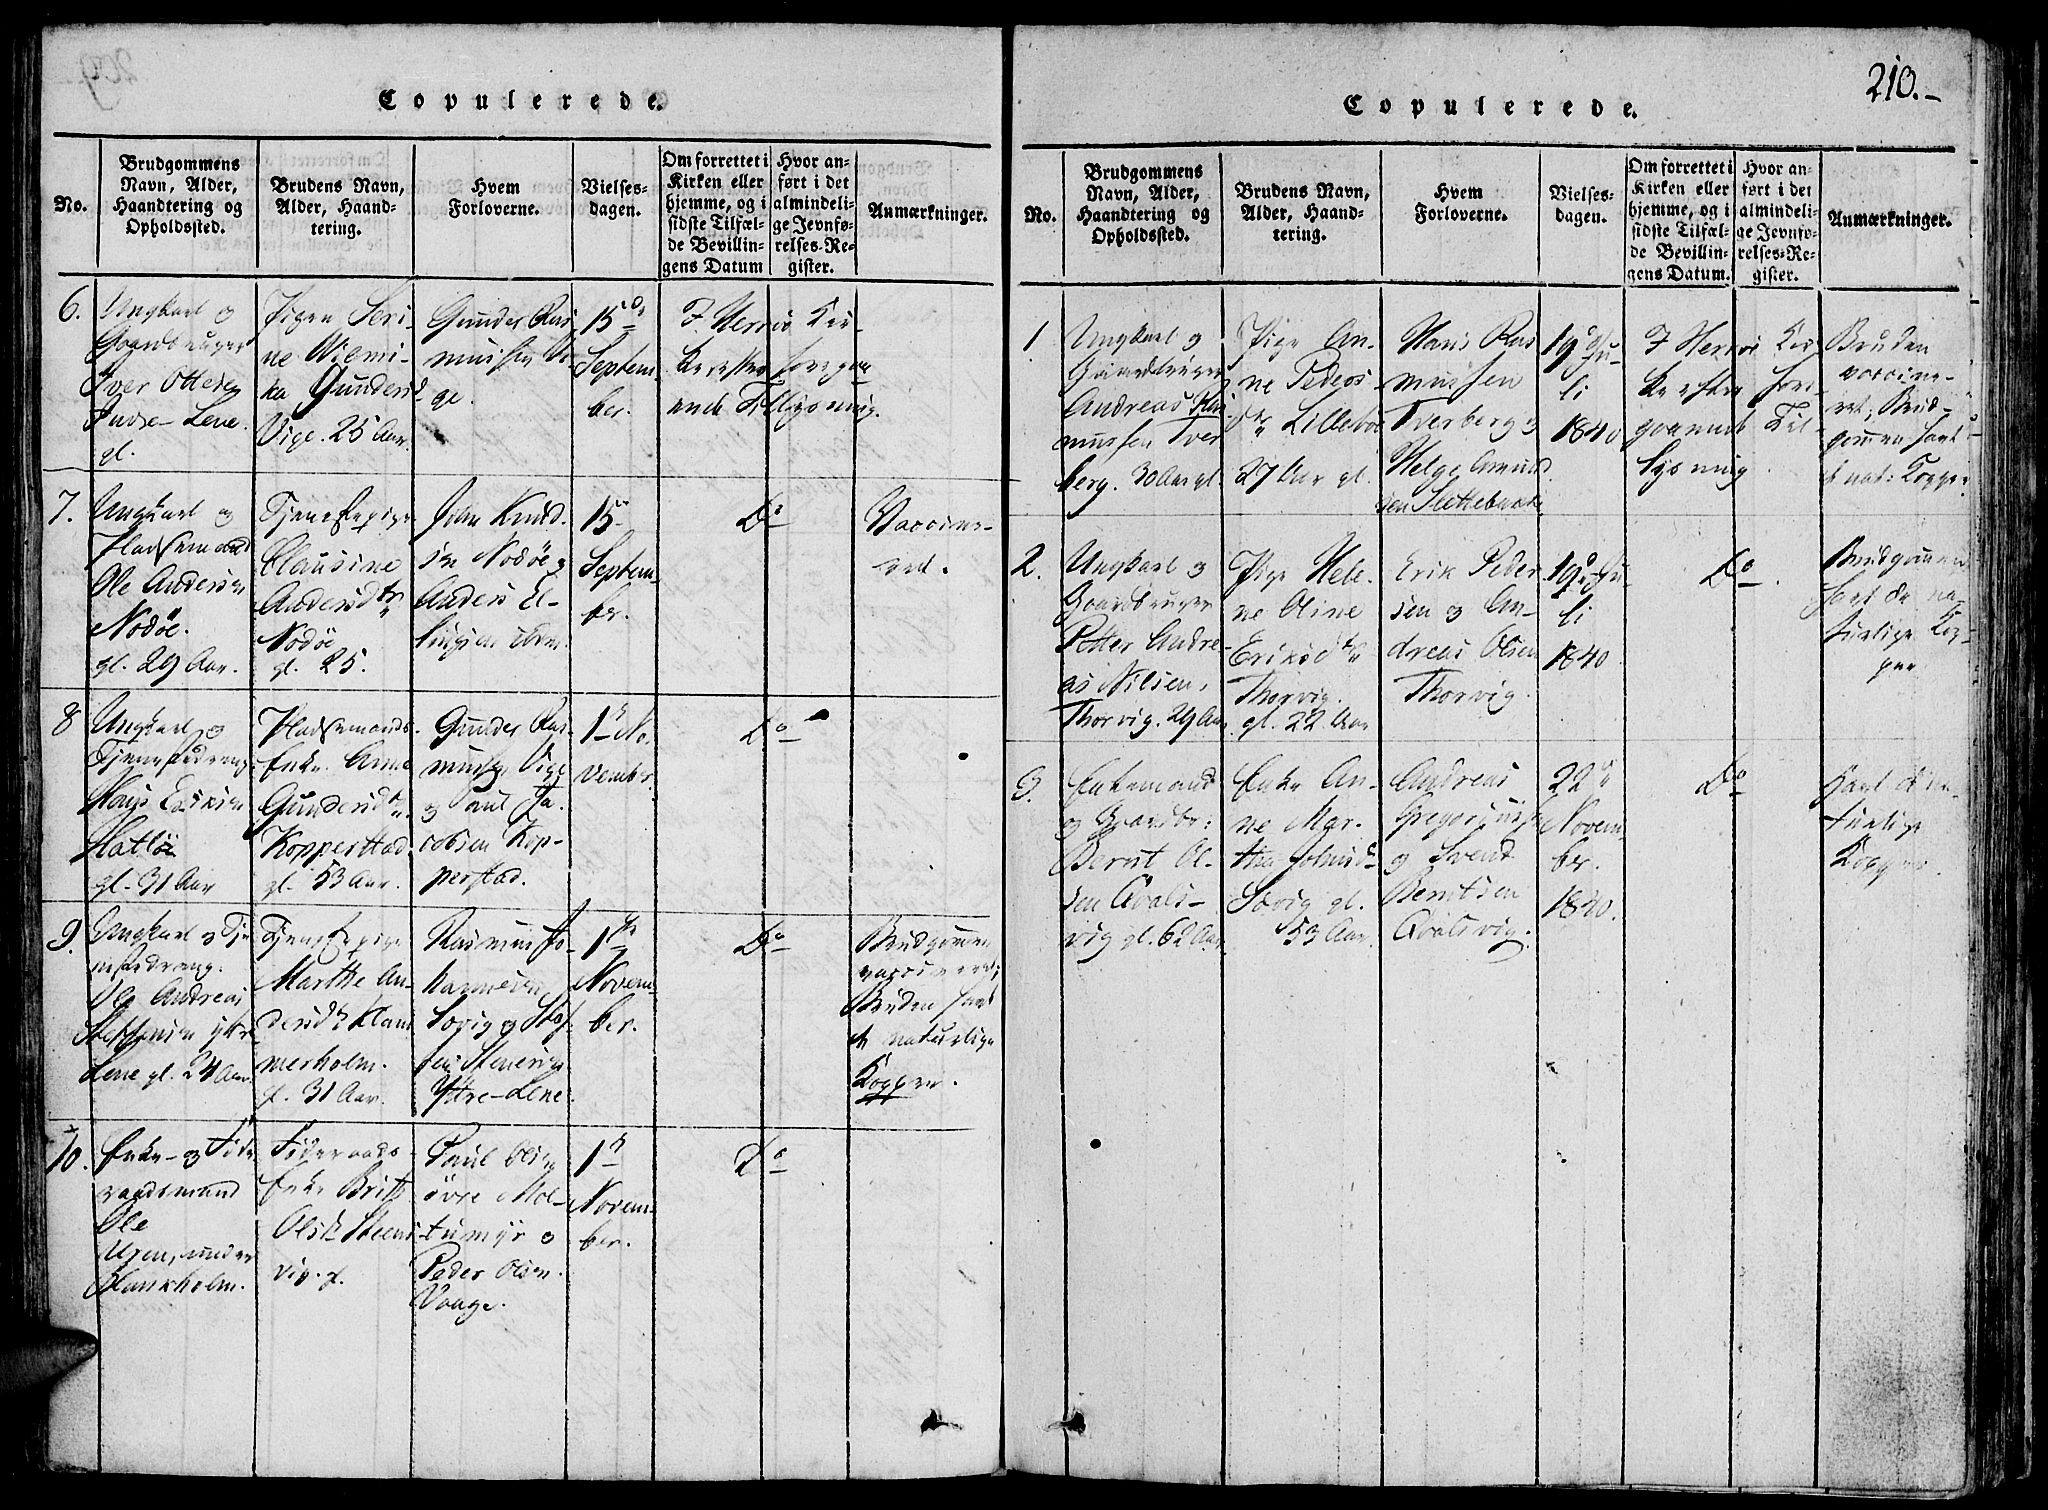 Copulerede.
No.
Brudgommens
Navn, Alder,
Haandtering og
Opholdssted.
Brudens Navn,
Alder, Haand-
tering.
Hvem
Forloverne.
Vielses-
dagen.
Om forrettet i
Kirken eller
hjemme, og i
sidste Tilfæl-
de Bevillin-
gens Datum
Hvor an-
ført i det
almindeli-
ge Jevnfø-
relses-Re-
gister.
Anmærkninger.
6.
Ungkarl og
Gaardbruger
Iver Ottesen
Indre-Lene.
gl.
Pigen Seri-
ne Wilmi-
ka Gundersd
Vige. 25 Aar.
Gunder Ras
mussen Vi-
ge.
15de
Septem-
ber.
I Herrøe Kir-
ke efter foregaa
ende Tillysning.
7.
Ungkarl og
Pladsemand
Ole Andersen
Nodøe.
gl. 29 Aar.
Tjenestepige
Clausine
Andersdtr
Nodöe
gl. 25.
John Knud-
sen Nodöe og
Anders El-
lingsen ibm.
15de
Septem-
ber.
Do
Vaccine-
red.
8
Ungkarl og
Tjenestedreng
Hans Eriksen
Hatlöe
gl. 31 Aar
Pladsemands
Enke Anne
Gundersdtr
Kopperstad.
gl. 53 Aar.
Gunder Ras-
mussen Vige
og Paul Ja-
cobsen Kop-
perstad.
1te No-
vember.
Do
9.
Ungkarl og Tje
nestedreng
Ole Andreas
Steffensen ytre
Lene gl. 24 Aar.
Tjenestepige
Marthe An-
dersdtr Klam
merholm.
gl. 31 Aar.
Rasmus Jo-
hannesen
Sovig og Stef
fen
Yttre-Lene
1te
Novem-
ber.
Do
Brudgommen
vaccineret;
Bruden havt
de naturlige
Kopper.
10.
Enke- og Föde
raadsmand
Ole
under
Flaskholm.
Föderaads
Enke Britte
Olsdtr Steens
vig. gl.
Paul Olsen
övre Mol-
tumyr og
Peder Olsen
Vaage.
1te
Novem-
ber.
Do
210.-
Copulerede.
No.
Brudgommens
Navn, Alder,
Haandtering og
Opholdssted.
Brudens Navn,
Alder, Haand-
tering.
Hvem
Forloverne.
Vielses-
dagen.
Om forrettet i
Kirken eller
hjemme, og i
sidste Tilfæl-
de Bevillin-
gens Datum.
Hvor an-
ført i det
almindeli-
ge Jevnfø-
relses-Re-
gister.
Anmærkninger.
1
Ungkarl og
Gaardbruger
Andreas Ras
mussen Tver
berg. 30 Aar gl.
Pige An-
ne Peders
dtr Lillebøe
27 Aar gl.
Hans Ras
mussen
Tverberg og
Helge Amund
sen Slettebakk
19de Ju-
li
1840
I Herröe Kir
ke efter fore
gaaende Til-
lysning
Bruden
vaccine-
ret; Brud-
gommen havt
d nat: Kopper
2.
Ungkarl og
Gaardbruger
Petter Andre-
as Nilsen,
Thorvig. 29 Aar
Pige Hele-
ne Oline
Eriksdtr
Thorvig.
gl. 22 Aar
Erik Peder
sen og An-
dreas Olsen
Thorvig.
19de Ju-
li
1840.
Do
Brudgommen
havt de na-
turlige Kop-
per
3.
Enkemand
og Gaardbr:
Bernt Ol-
sen Qvals-
vig gl. 62 Aar
Enke An-
ne Mar-
the Johnsd
Sovig gl.
53 Aar.
Andreas
Gregoriuss
og Svend
Berntsen
Qvalsvig.
22de
Novem-
ber.
1840.
Do
havt d na-
turlige
Kopper.